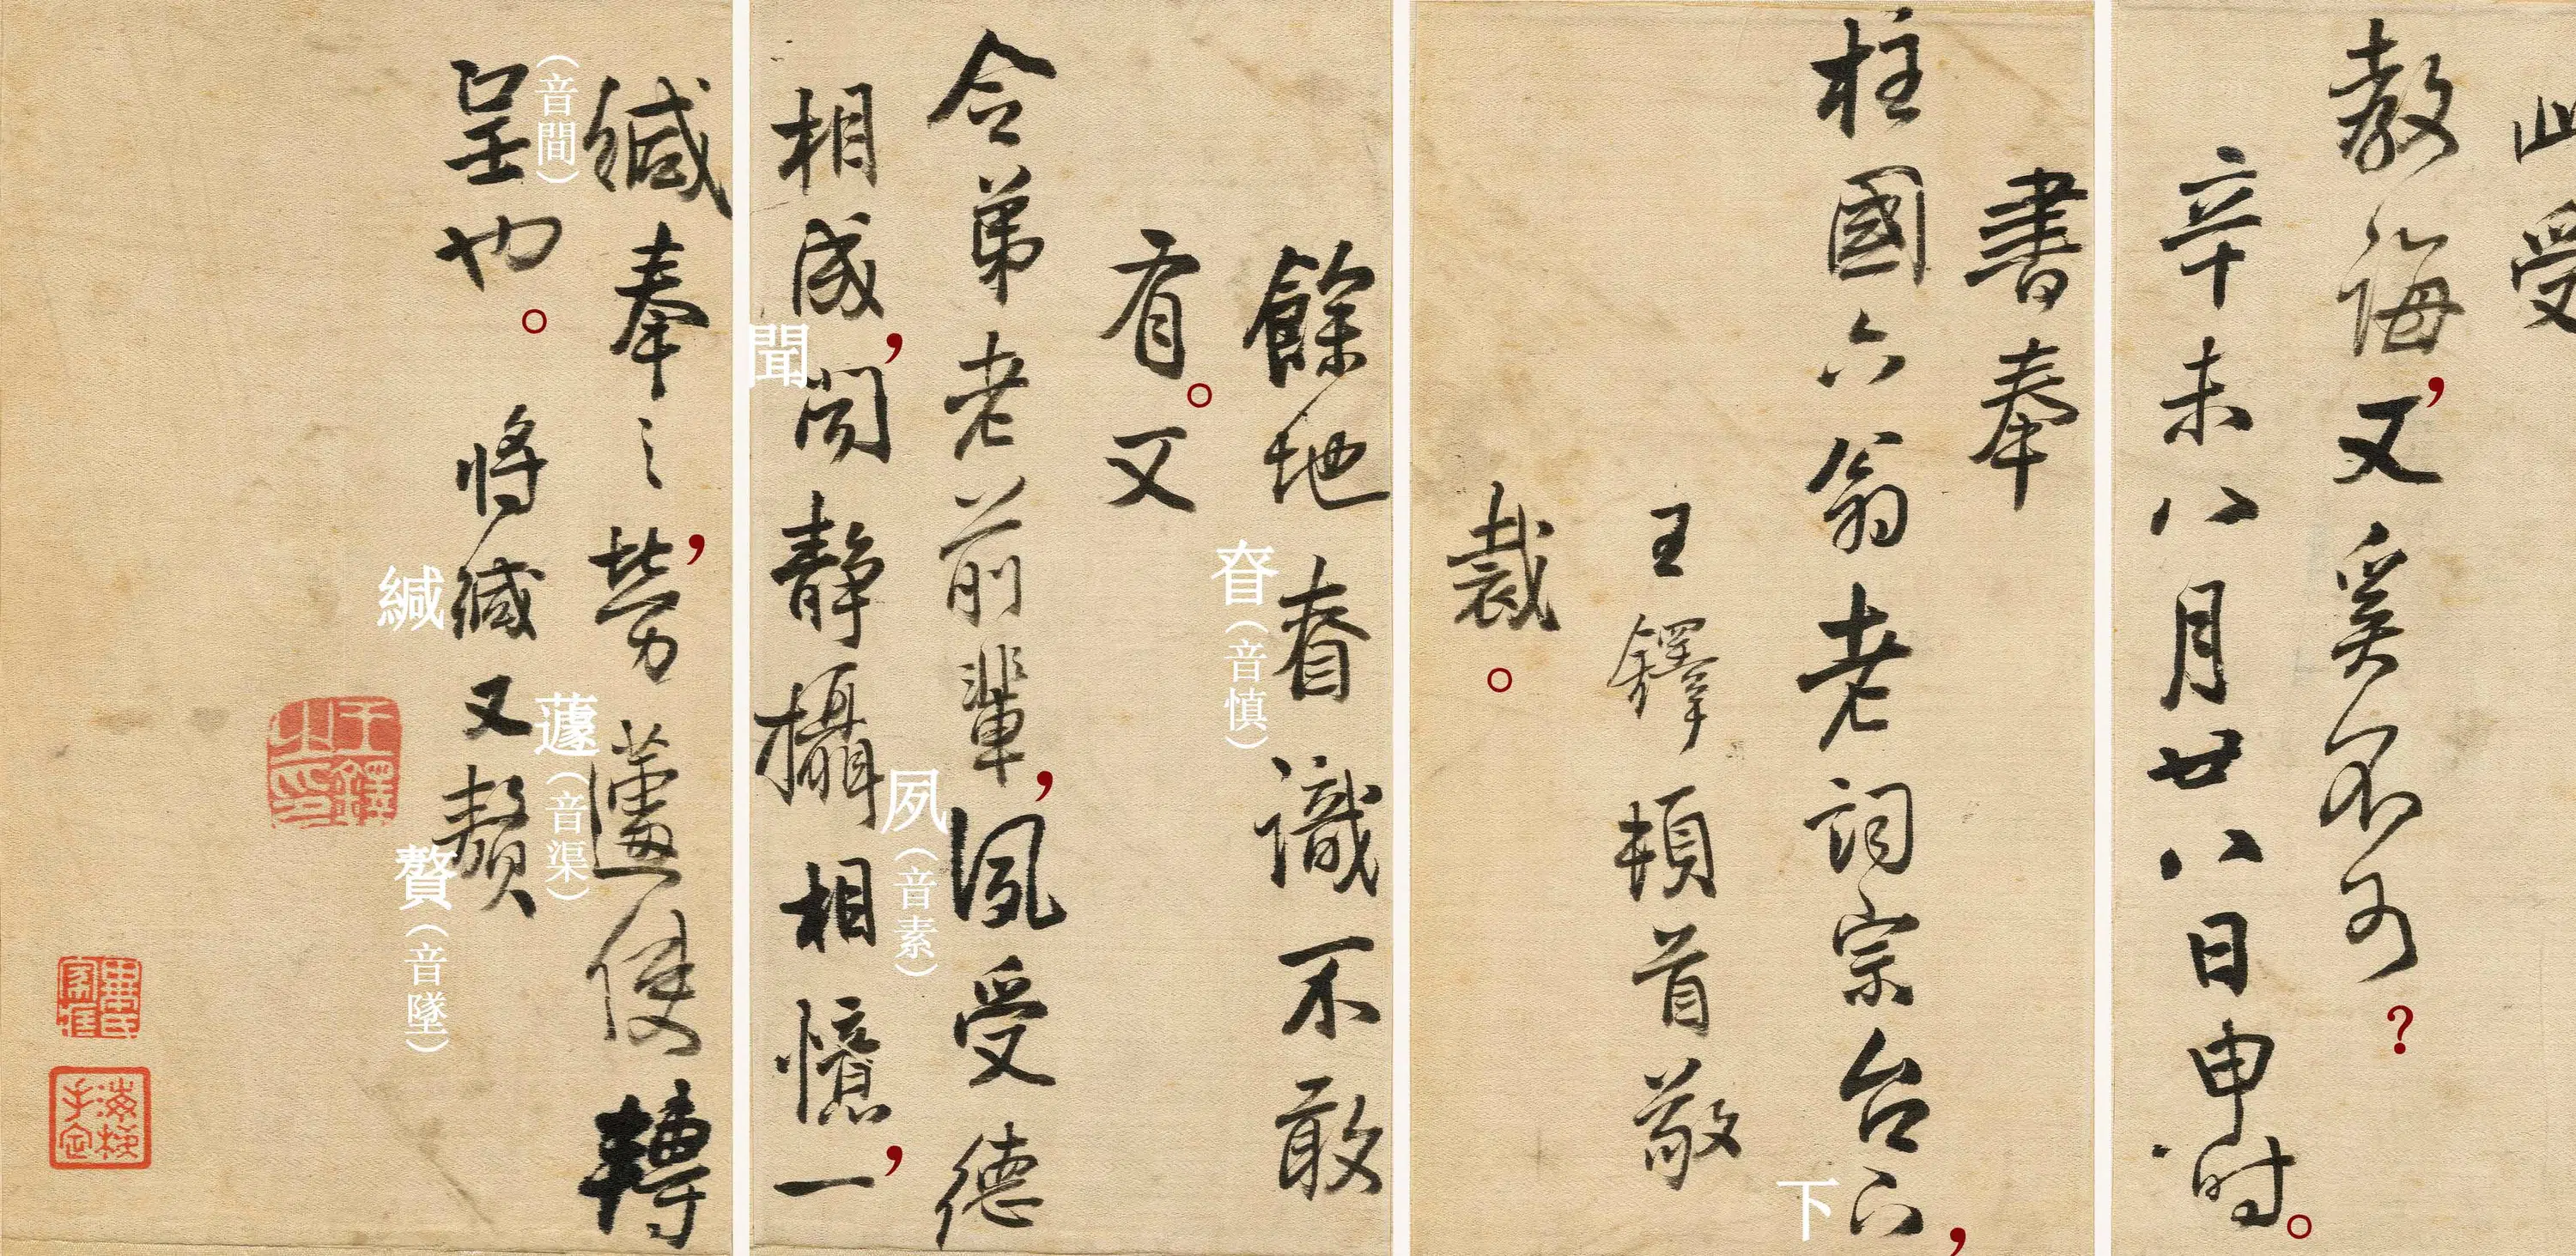 此受
教誨，又奚不可？
辛未八月廿八日申时。
書奉
柱國六翁老詞宗台下，
下
王鐸頓首敬
裁。
餘地眘識不敢
眘（音慎）
有。又
令弟老前輩，夙受德
夙（音素）
相成，聞静攝相憶，一
聞
緘奉之，勞蘧使轉
（音間）
蘧（音渠）
呈也。将緘又贅
緘
贅（音墜）
王鐸之印